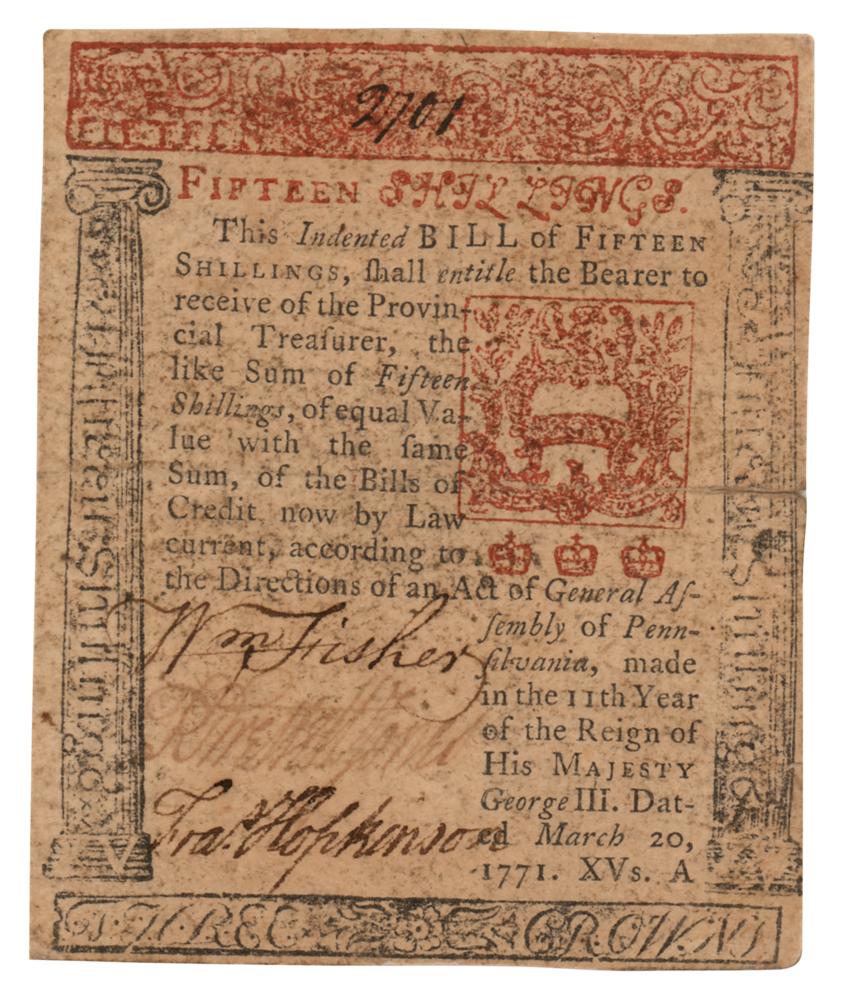 2701
FIFTEEN
FIFTEEN SHILLINGS.
This Indented BILL of FIFTEEN
SHILLINGS, ſhall entitle the Bearer to
receive of the Provin-
cial Treaſurer, the
like Sum of Fifteen
Shillings, of equal Va-
lue with the ſame
Sum, of the Bills of
Credit now by Law
current, according to
the Directions of an Act of General Aſ-
ſembly of Penn-
ſilvania, made
in the 11th Year
of the Reign of
His MAJESTY
George III. Dat-
ed March 20,
1771. XVs. A
Wm Fisher
Fras Hopkinson
Fifteen Shillings
Fifteen Shillings
THREE CROWNS